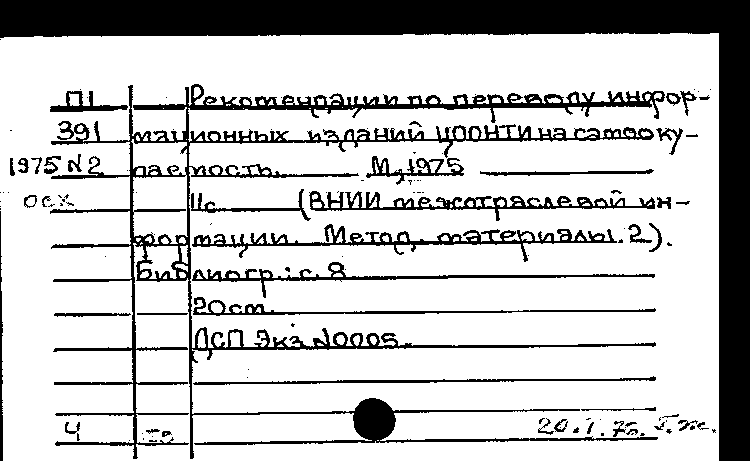 П1 Рекомендации по переводу инфор-
391 мационных изданий ЦООНТИ на самооку-
1975 N2 паемость. М, 1975
осх 11с. (ВНИИ межотраслевой ин-
формации. Метод. материалы. 2).
Библиогр.: с. 8
20см.
ДСП Экз N0005.
4